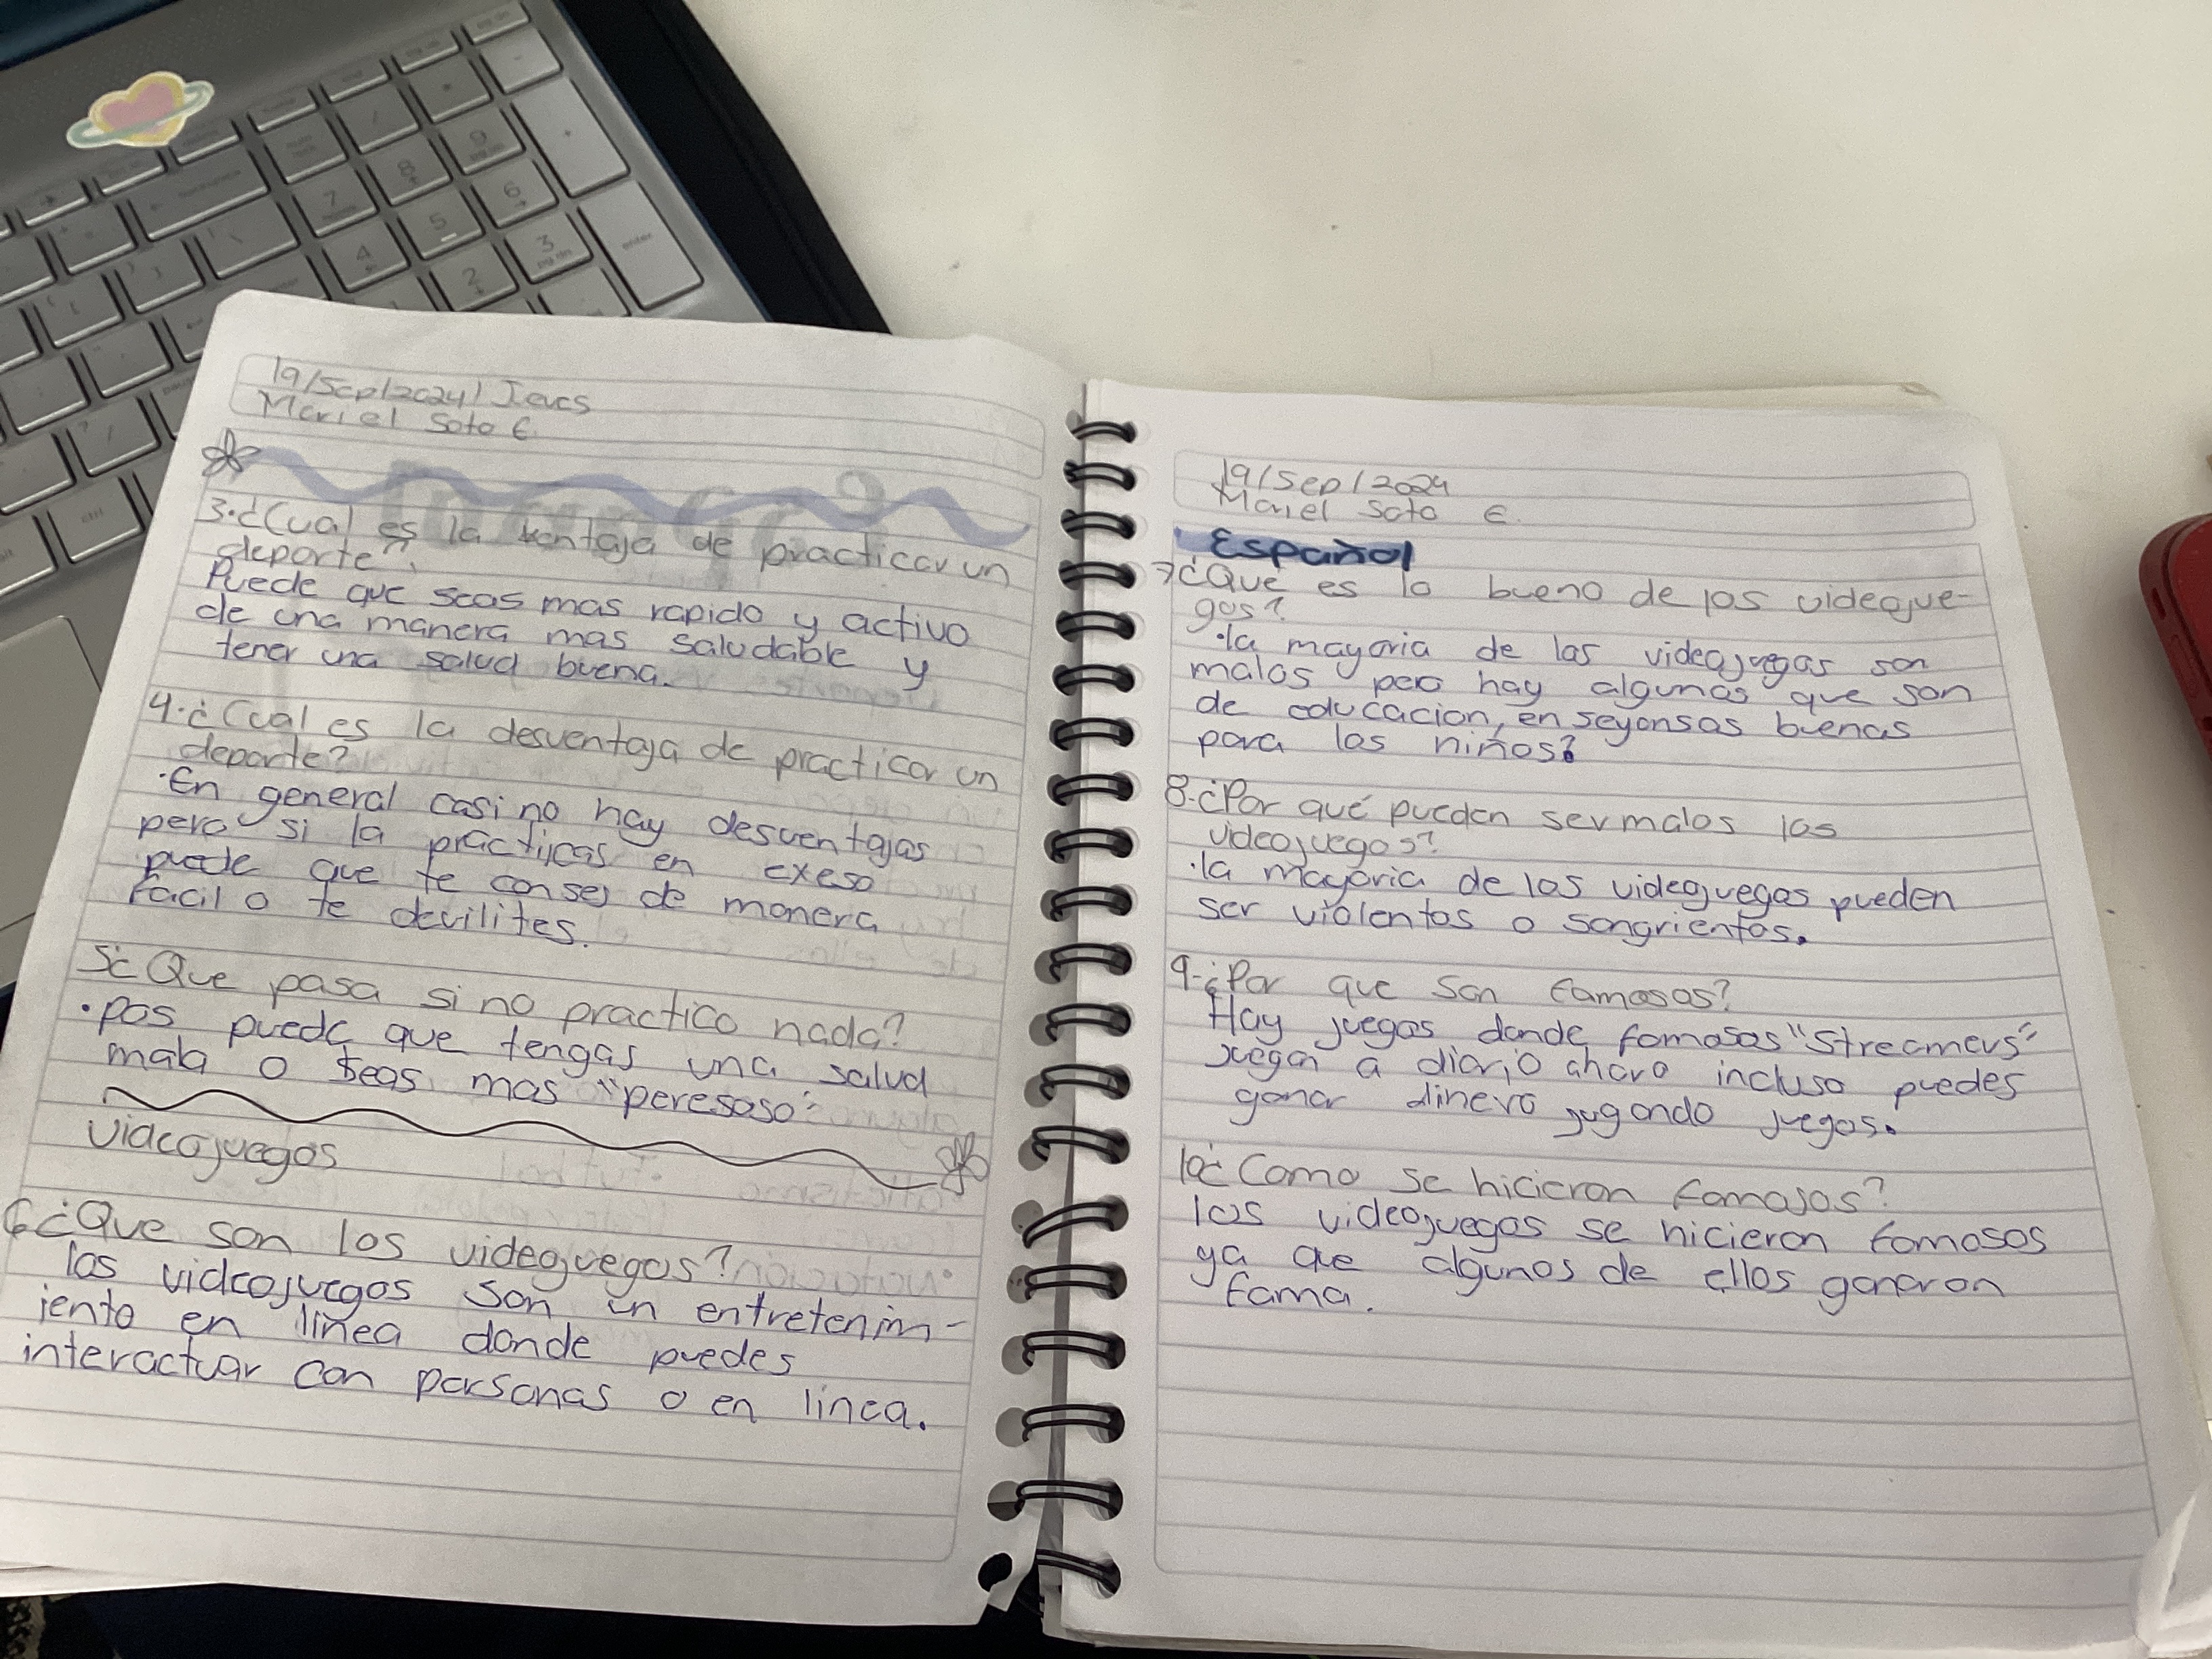 19/Sep/2024/ Jeves
Mariel Soto E.
3.¿Cual es la ventaja de practicar un
deporte?
Puede que seas mas rapido y activo
de una manera mas saludable y
tener una salud buena.
4.¿Cual es la desventaja de practicar un
deporte?
·En general casi no hay desventajas
pero si la practicas en exeso
puede que te canses de manera
facil o te devilites.
5¿Que pasa si no practico nada?
·pos puede que tengas una salud
mala o seas mas "peresoso"
videojuegos
6¿Que son los videojuegos?
los videojuegos son un entretenim-
iento en linea donde puedes
interactuar con personas o en linea.
19/Sep/2024
Mariel Soto E.
Español
7¿Que es lo bueno de los videojue-
gos?
·la mayoria de los videojuegos son
malos pero hay algunos que son
de educacion, enseyansas buenas
para los niños.
8-¿Por qué pueden ser malos los
videojuegos?
·la mayoria de los videojuegos pueden
ser violentos o sangrientos.
9-¿Por que son famosos?
Hay juegos donde famosos "Streamers"
juegan a diario ahora incluso puedes
ganar dinero jugando juegos.
10¿Como se hicieron famosos?
los videojuegos se hicieron famosos
ya que algunos de ellos ganaron
fama.
7
8
9
4
5
6
2
3
enter
pg dn
ctrl